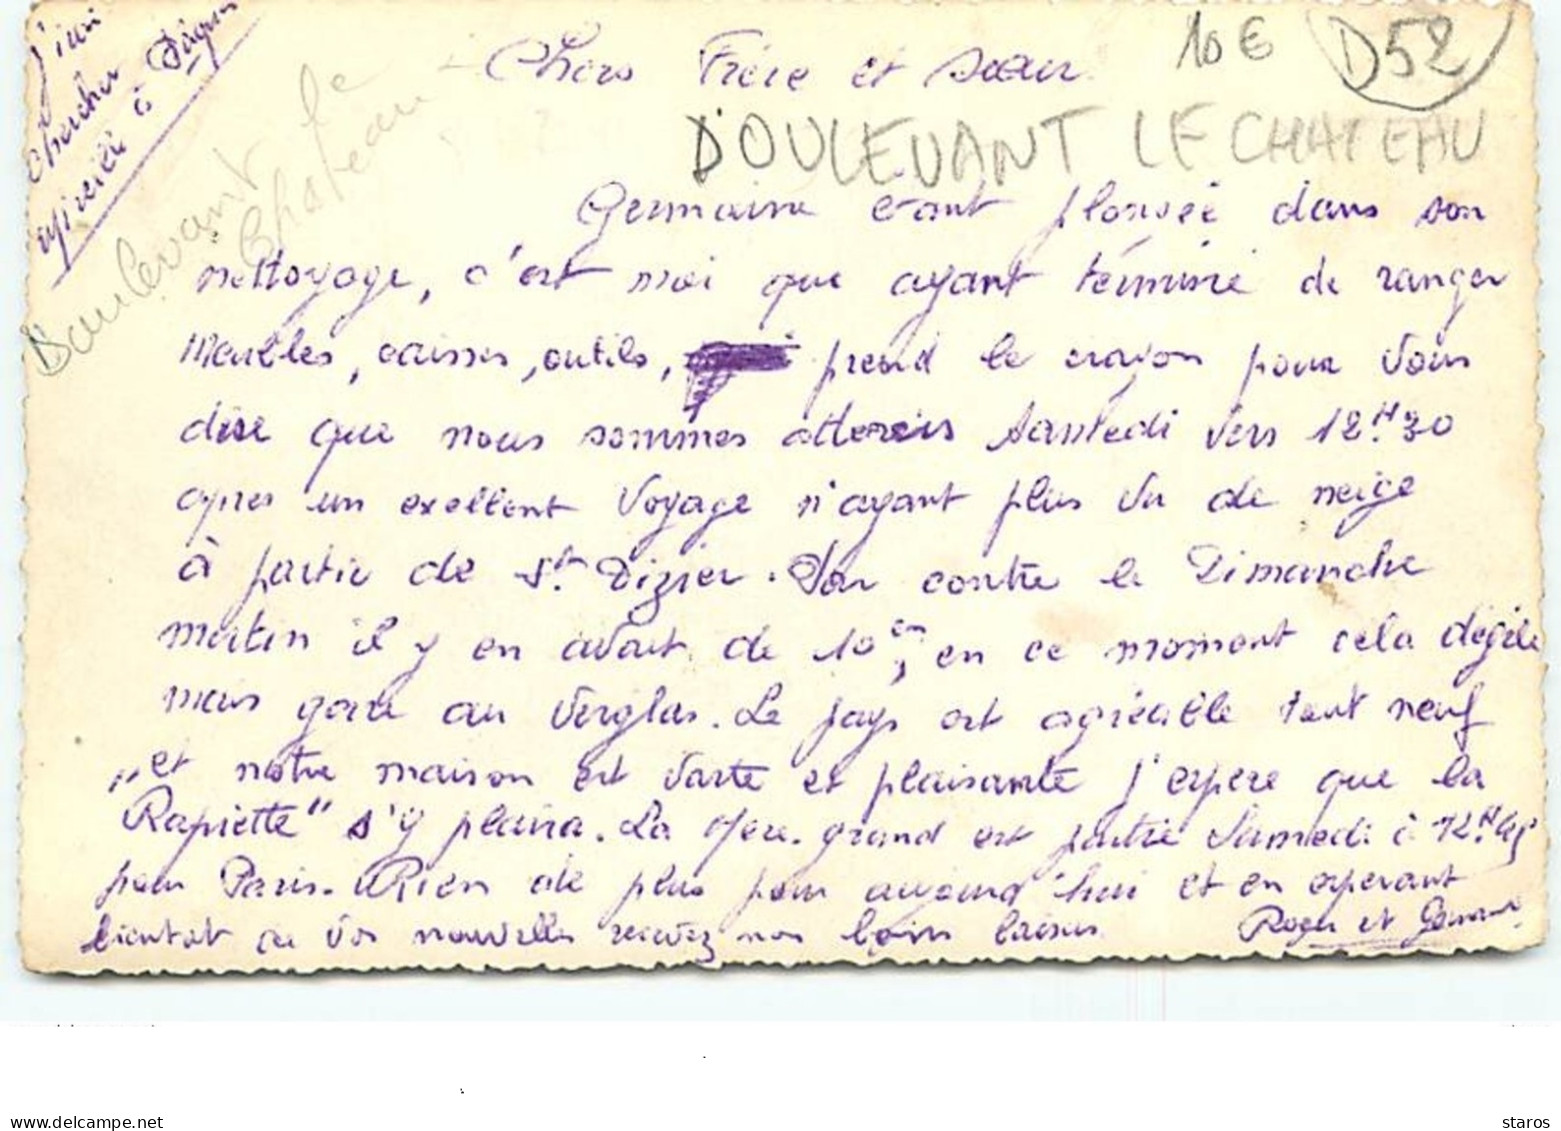 j'irai
chercher
à Pâques
Doulevant le
Château
Chers Frère et sœur
10 €
D52
DOULEVANT LE CHATEAU
Germaine étant plongée dans son
nettoyage, c'est moi que ayant términé de ranger
meubles, caisses, outils, prend le crayon pour vous
dire que nous sommes atterris Samedi vers 12H30
après un exellent voyage n'ayant plus vu de neige
à partir de St Dizier. Par contre le Dimanche
matin il y en avait de 10 cm, en ce moment cela dégèle
mais gare au verglas. Le pays est agréable tout neuf
et notre maison est vaste et plaisante j'espère que la
"Rapiette" s'y plaira. La mère-grand est partie Samedi à 12H45
pour Paris. Rien de plus pour aujourd'hui et en espérant
bientôt de vos nouvelles recevez nos bons baisers Roger et Germaine
delcampe.net
staros